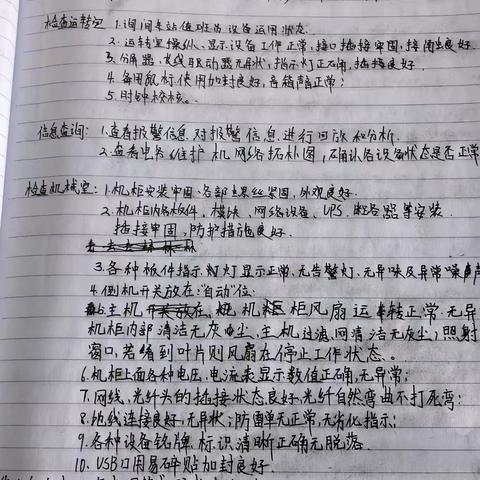 检查运转室 1.询问车站值班员设备运用状态.
2.运转室操纵、显示设备工作正常,接口插接牢固,接触良好.
3.分屏器、长线驱动器无异状,指示灯正确,插接良好
4.备用鼠标使用加封良好,音箱声正常;
5.时钟校核。
信息查询: 1.查看报警信息对报警信息进行回放和分析.
2.查看电务维护机网络拓扑图,确认各设备状态是否正常
检查机械室: 1.机柜安装牢固、各部螺丝紧固,外观良好.
2.机柜内各板件、模块、网络设备、UPS、断路器等安装.
插接牢固,防护措施良好.
3.各种板件指示灯显示正常、无告警灯、无异味及异常噪声
4.倒机开关放在:"自动"位:
主机 机柜风扇运转正常.无异
机柜内部清洁无灰尘、主机过滤网清洁无灰尘;照射
窗口,若绪到叶片则风扇在停止工作状态。
6.机柜上面各种电压.电流表显示数值正确,无异常;
7.网线、光纤头的插接状态良好,光纤自然弯曲不打死弯;
8.地线连接良好,无异状;防雷单元正常,无劣化指示;
9.各种设备铭牌.标识清晰正确无脱落.
10、USB口用易碎贴加封良好.